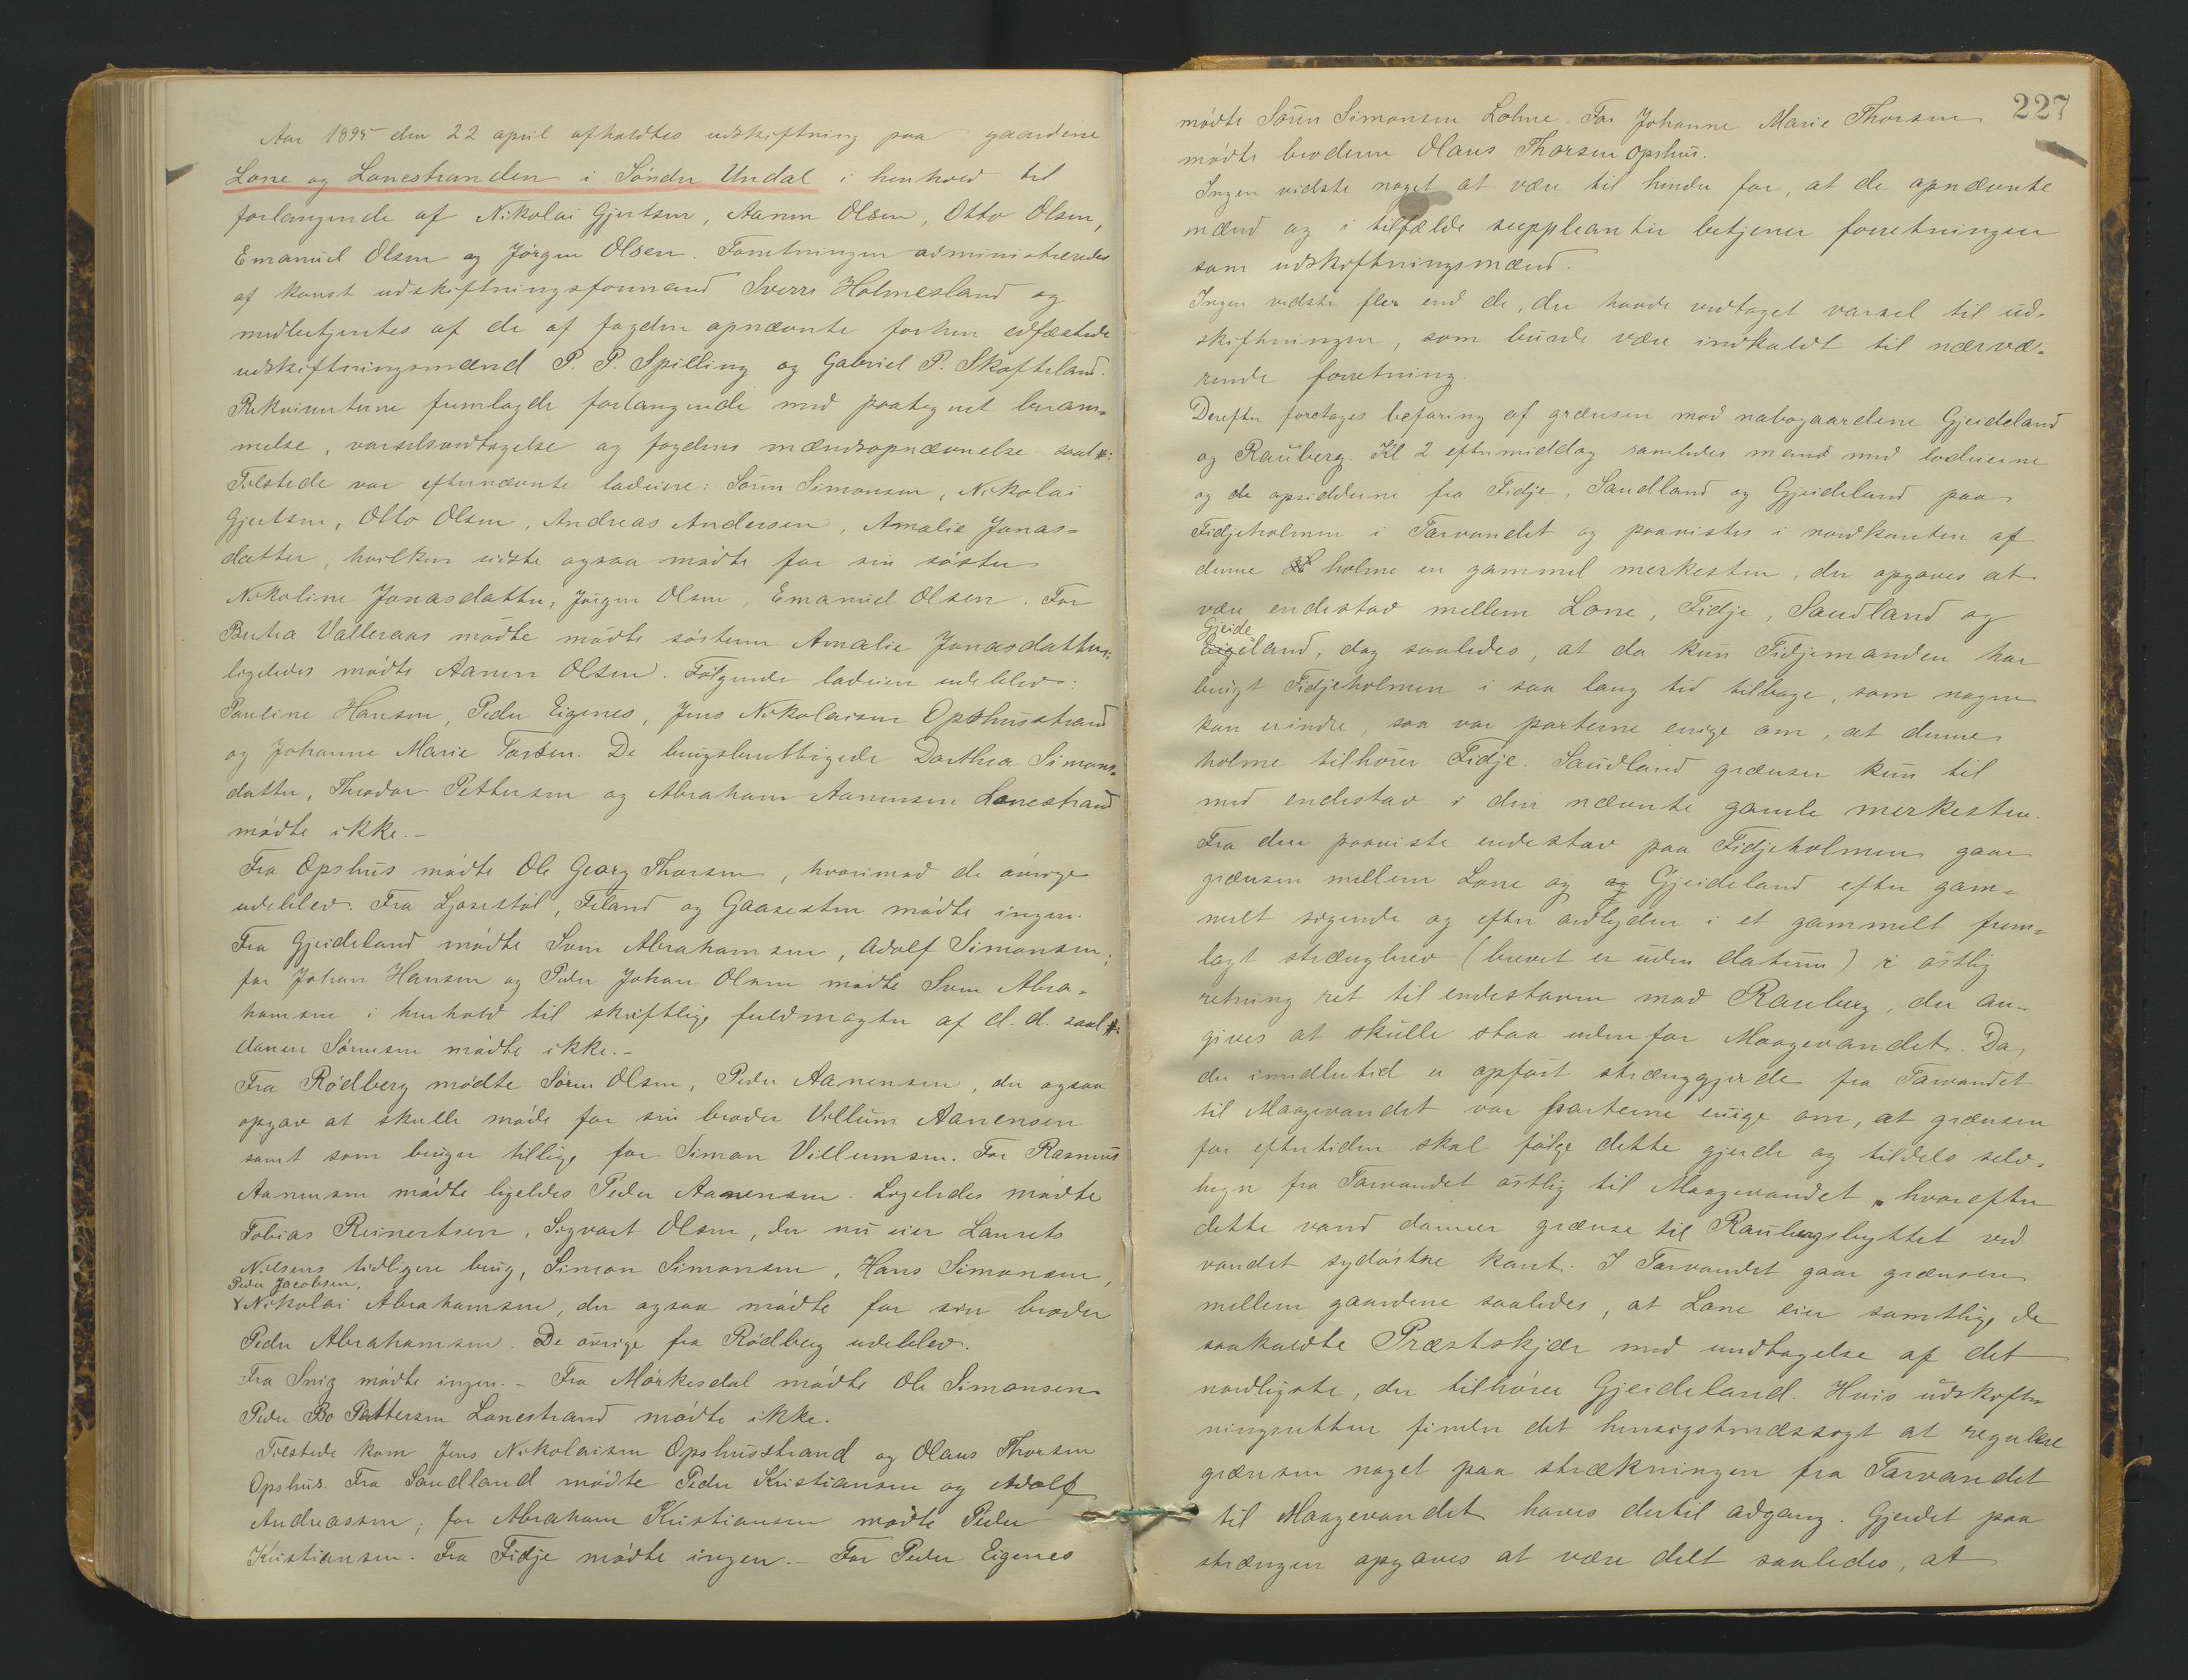 Aar 1895 den 22 april afholdtes udskiftning paa gaardene
Lone og Lonestranden i Söndre Undal i henhold til
forlangende af Nikolai Gjertsen, Aanen Olsen, Otto Olsen,
Emanuel Olsen og Jörgen Olsen. Forretningen administreredes
af konst udskiftningsformand Sverre Holmesland og
medbetjentes af de af fogden opnævnte forhen edfæstede
udskiftningsmænd P. P. Spilling og Gabriel P. Skofteland.
Rekvirenterne fremlagde forlangende med paategnet beram-
melse, varselsvedtagelse og fogdens mændsopnævnelse saal #:
Tilstede var efternævnte lodeiere: Sören Simonsen, Nikolai
Gjertsen, Otto Olsen, Andreas Andersen, Amalie Jonas-
datter, hvilken sidste ogsaa mödte for sin söster
Nikoline Jonasdatter, Jörgen Olsen, Emanuel Olsen. For
Bertea Valleraas mödte mödte söstern Amalie Jonasdatter;
ligeledes mödte Aanen Olsen. Fölgende lodeiere udeblev:
Pauline Hansen, Peder Eigenes, Jens Nikolaisen Opshusstrand
og Johanne Marie Torsen. De brugsberettigede Dorthea Simons-
datter, Theodor Pettersen og Abraham Aanensen Lonestrand
mödte ikke.-
Fra Opshus mödte Ole Georg Thorsen, hvorimod de övrige
udeblev. Fra Ljosestöl, Feland og Gaasesten mödte ingen.
Fra Gjeideland mödte Sven Abrahamsen, Adolf Simonsen;
for Johan Hansen og Peder Johan Olsen mödte Sven Abra-
hamsen i henhold til skriftlige fuldmagter af d. d. saal #:
Aanen Sörensen mödte ikke.-
Fra Rödberg mödte Sören Olsen, Peder Aanensen, der ogsaa
opgav at skulle möde for sin broder Villum Aanensen
samt som bruger tillige for Simon Villumsen. For Rasmus
Aanensen mödte ligeledes Peder Aanensen. Ligeledes mödte
Tobias Reinertsen, Sigvart Olsen, der nu eier Laurets
Nilsens tidligere brug, Simon Simonsen, Hans Simonsen,
Peder Jacobsen,
Nikolai Abrahamsen, der ogsaa mödte for sin broder
Peder Abrahamsen. De övrige fra Rödberg udeblev.
Fra Snig mödte ingen.- Fra Mörkesdal mödte Ole Simonsen
Peder Bo Pettersen Lonestrand mödte ikke.
Tilstede kom Jens Nikolaisen Opshusstrand og Olaus Thorsen
Opshus. Fra Saudland mödte Peder Kristiansen og Adolf
Andreassen; for Abraham Kristiansen mödte Peder
Kristiansen. Fra Fidje mödte ingen.- For Peder Eigenes
227
mödte Sören Simonsen Lohne. For Johanne Marie Thorsen
mödte broderen Olaus Thorsen Opshus.
Ingen vidste noget at være til hinder for, at de opnævnte
mænd og i tilfælde suppleanter betjener forretningen
som udskiftningsmænd.
Ingen vidste fler end de, der havde vedtaget varsel til ud-
skiftningen, som burde være indkaldt til nærvæ-
rende forretning.
Derefter foretoges befaring af grænsen mod nabogaardene Gjeideland
og Rauberg. Kl 2 eftermiddag samledes mænd med lodeierne
og de opsidderne fra Fidje, Saudland og Gjeideland paa
Fidjeholmen i Tarvandet og paavistes i nordkanten af
denne holme en gammel merkesten, der opgaves at
være endestav mellem Lone, Fidje, Saudland og
Gjeide
eigeland, dog saaledes, at da kun Fidjemanden har
brugt Fidjeholmen i saa lang tid tilbage, som nogen
kan erindre, saa var parterne enige om, at denne
holme tilhörer Fidje. Saudland grænser kun til
med endestav i den nævnte gamle merkesten.
Fra den paaviste endestav paa Fidjeholmen gaar
grænsen mellem Lone og og Gjeideland efter gam-
melt sigende og efter ordlyden i et gammelt frem-
lagt strængbrev (brevet er uden datum) i östlig
retning ret til endestaven mod Rauberg, der an-
gives at skulle staa udenfor Maagevandet. Da
der imidlertid er opfört strænggjerde fra Tarvandet
til Maagevandet var parterne enige om, at grænsen
for eftertiden skal fölge dette gjerde og tildels selv-
hegn fra Tarvandet östlig til Maagevandet, hvorefter
dette vand danner grænse til Raubergsbyttet ved
vandet sydöstre kant. I Tarvandet gaar grænsen
mellem gaardene saaledes, at Lone eier samtlige de
saakaldte Præstskjær med undtagelse af det
nordligste, der tilhörer Gjeideland. Hvis udskift-
ningsretten finder det hensigtsmæssigt at regulere
grænsen noget paa strækningen fra Tarvandet
til Maagevandet haves dertil adgang. Gjerdet paa
strængen opgaves at være delt saaledes, at